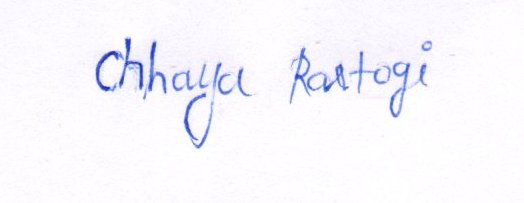 Chhaya Rastogi